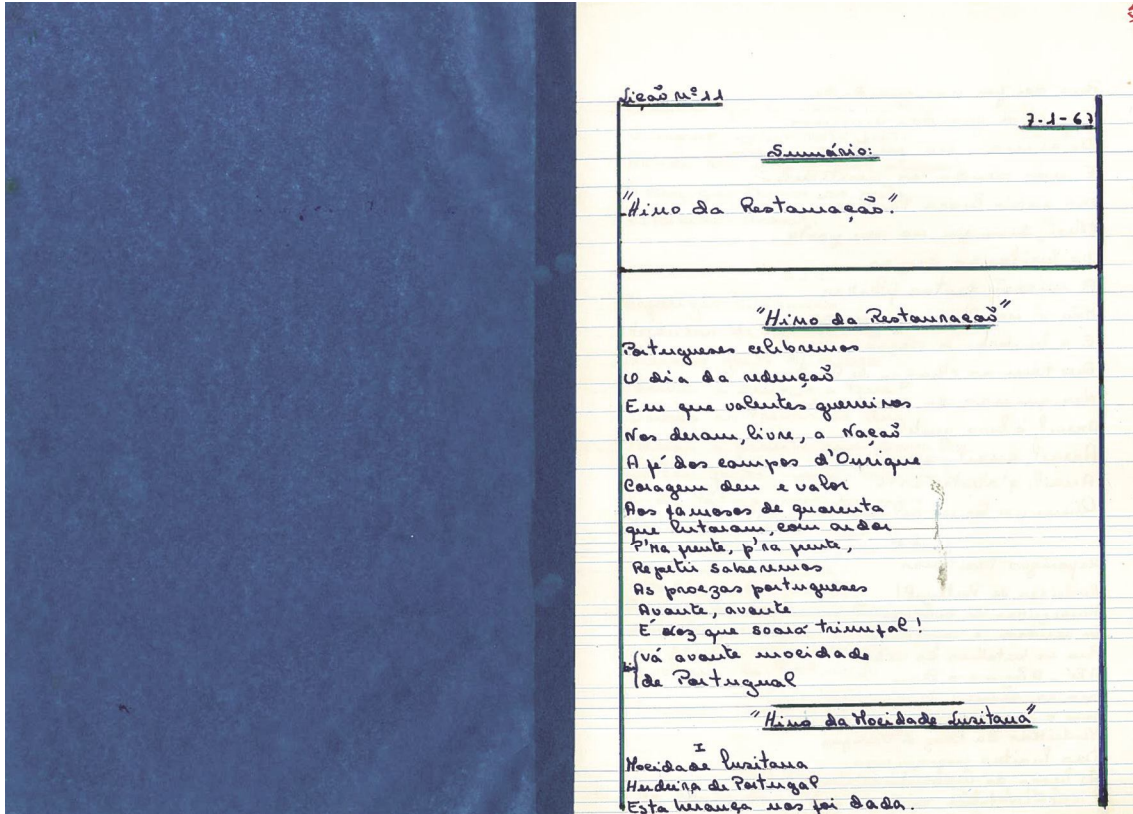 Lição Nº 11
7-1-67
Sumário:
"Hino da Restauração".
"Hino da Restauração"
Portugueses celibremos
O dia da redenção
Em que valentes guerreiros
Nos deram, livre, a Nação
A fé dos campos d'Ourique
Coragem deu e valor
Aos famosos de quarenta
que lutaram, com ardor
P'ra frente, p'ra frente,
Repetir saberemos
As proezas portugueses
Avante, avante
É voz que soará triunfal!
bis (vá avante mocidade
de Portugual
"Hino da Mocidade Lusitana"
I
Mocidade lusitana
Herdeira de Portugal
Esta herança nos foi dada.